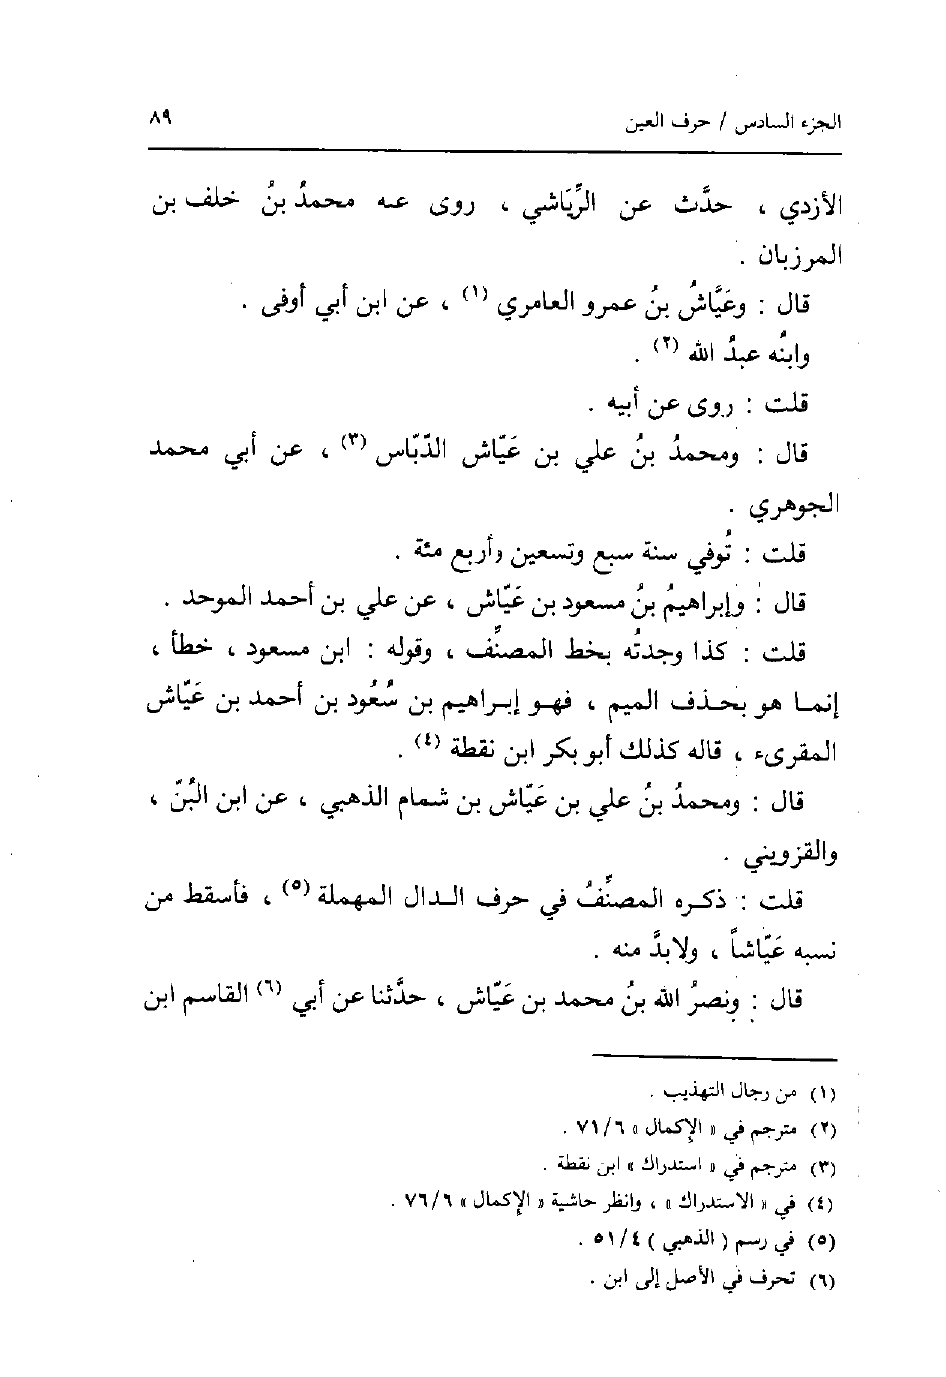 الجزء السادس / حرف العين ٨٩
الأزدي ، حدَّث عن الرِّيَاشي ، روى عنه محمدُ بنُ خلف بن
المرزبان .
قال : وعَيَّاشُ بنُ عمرو العامري (١) ، عن ابن أبي أوفى .
وابنُه عبدُ الله (٢) .
قلت : روى عن أبيه .
قال : ومحمدُ بنُ علي بن عَيّاش الدّبّاس (٣) ، عن أبي محمد
الجوهري .
قلت : تُوفي سنة سبع وتسعين وأربع مئة .
قال : وإبراهيمُ بنُ مسعود بن عَيّاش ، عن علي بن أحمد الموحد .
قلت : كذا وجدتُه بخط المصنِّف ، وقوله : ابن مسعود ، خطأ ،
إنما هو بحذف الميم ، فهو إبراهيم بن سُعُود بن أحمد بن عَيّاش
المقرىء ، قاله كذلك أبو بكر ابن نقطة (٤) .
قال : ومحمدُ بنُ علي بن عَيّاش بن شمام الذهبي ، عن ابن البُنّ ،
والقزويني .
قلت : ذكره المصنِّفُ في حرف الدال المهملة (٥) ، فأسقط من
نسبه عَيّاشاً ، ولابدَّ منه .
قال : ونصرُ الله بنُ محمد بن عَيّاش ، حدَّثنا عن أبي (٦) القاسم ابن
(١) من رجال التهذيب .
(٢) مترجم في « الإكمال » ٧١/٦ .
(٣) مترجم في « استدراك » ابن نقطة .
(٤) في « الاستدراك » ، وانظر حاشية « الإكمال » ٧٦/٦ .
(٥) في رسم ( الذهبي ) ٥١/٤ .
(٦) تحرف في الأصل إلى ابن .